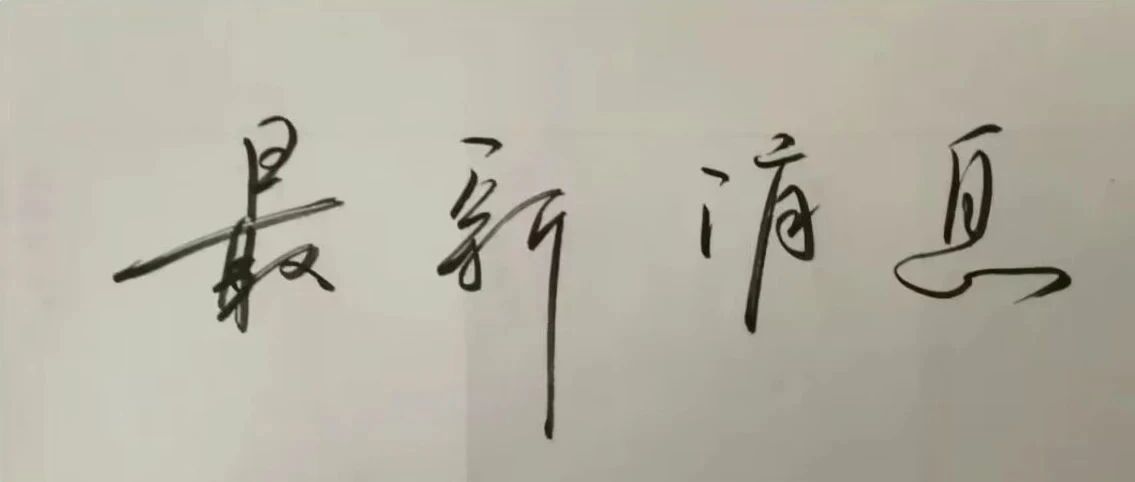 最新消息